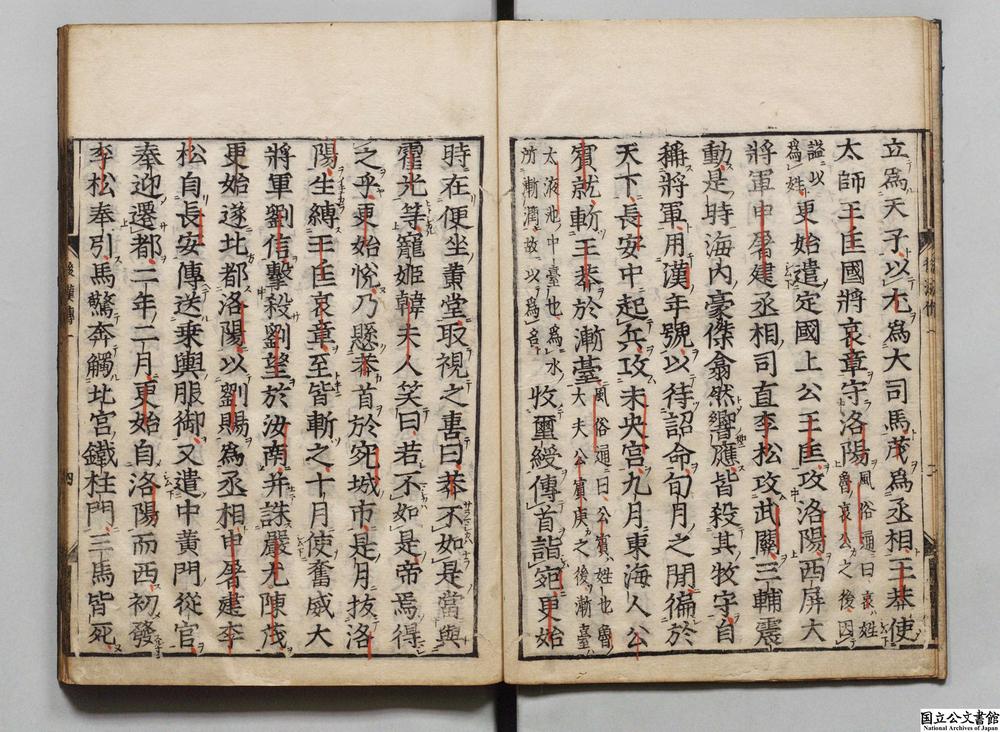 立爲天子以尤爲大司馬茂爲丞相王莽使
太師王匡國將哀章守洛陽風俗通曰哀姓
魯哀公之後因
謚以
爲姓更始遣定國上公王匡攻洛陽西屏大
將軍申屠建丞相司直李松攻武關三輔震
動是時海内豪傑翕然響應皆殺其牧守自
稱將軍用漢年號以待詔命旬月之閒徧於
天下長安中起兵攻未央宮九月東海人公
賓就斬王莽於漸臺風俗通曰公賓姓也魯
大夫公賓庚之後漸臺
太液池中臺也爲水
所漸潤故以爲名收璽綬傳首詣宛更始
時在便坐黄堂取視之喜曰莽不如是當與
霍光等寵姬韓夫人笑曰若不如是帝焉得
之乎更始悅乃懸莽首於宛城市是月拔洛
陽生縛王匡哀章至皆斬之十月使奮威大
將軍劉信擊殺劉望於汝南并誅嚴尤陳茂
更始遂北都洛陽以劉賜爲丞相申屠建李
松自長安傳送乘輿服御又遣中黄門從官
奉迎遷都二年二月更始自洛陽而西初發
李松奉引馬驚奔觸北宮鐵柱門三馬皆死
後漢傳一
四
国立公文書館
National Archives of Japan